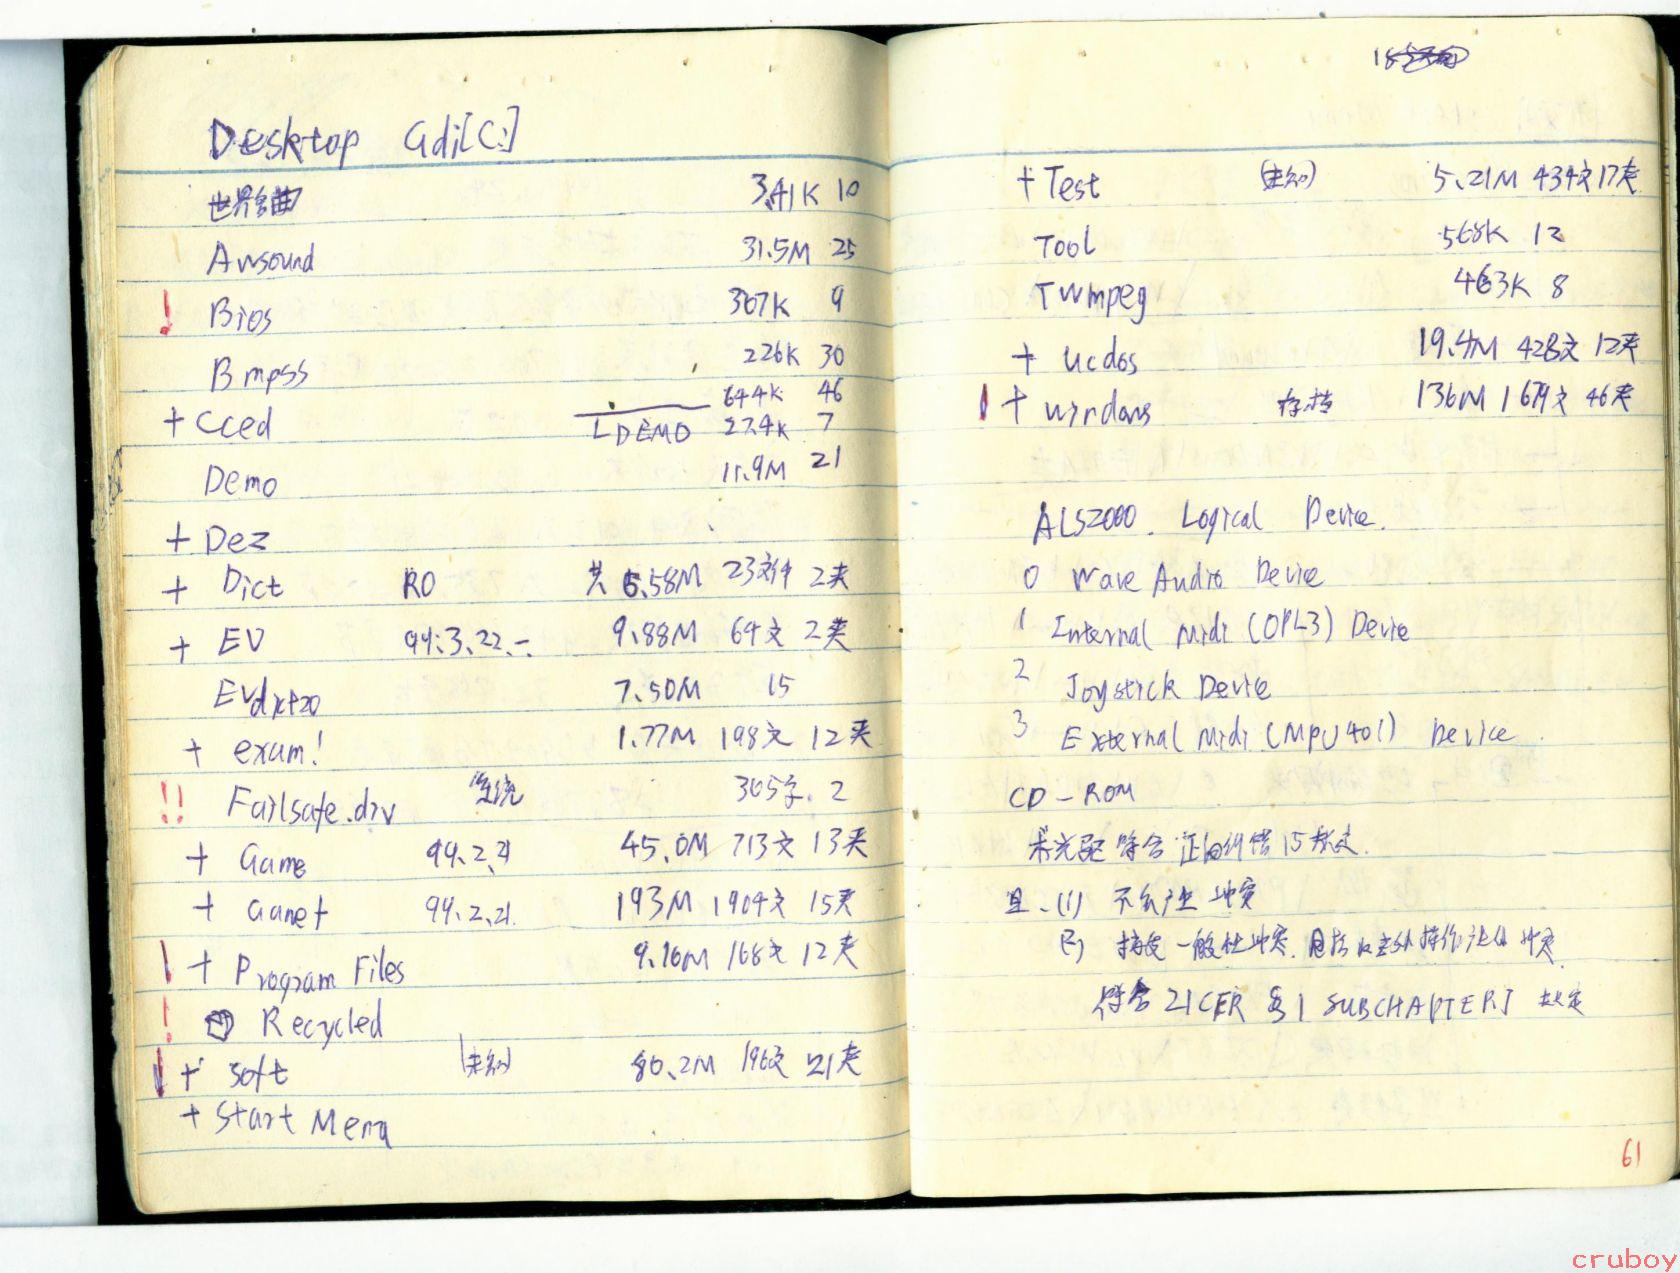 Desktop Gdi[C:]
世界名曲 341K 10
Awsound 31.5M 25
! Bios 307K 9
Bmpss 226K 30
+ Cced 644K 46
LDEMO 27.4K 7
Demo 11.9M 21
+ Dez
+ Dict RO 共 6.58M 23文件 2夹
+ EV 99.3.22.一 9.88M 64文 2夹
EVdixt20 7.50M 15
+ exam! 1.77M 198文 12夹
!! Failsafe.drv 系统 365字. 2
+ Game 99.2.21 45.0M 713文 13夹
+ Gamet 99.2.21. 193M 1904文 15夹
! + Program Files 9.16M 168文 12夹
! Recycled
! + Soft 未知 80.2M 196文 21夹
+ Start Menu
+ Test 未知 5.21M 434文17夹
Tool 568K 12
TWmpeg 463K 8
+ Ucdos 19.4M 428文 12夹
! + Windows 存档 136M 1679文 46夹
ALS2000. Logical Device.
0 Wave Audio Device
1 Internal Midi (OPL3) Device
2 Joystick Device
3 External Midi (MPU401) Device.
CD-ROM
光驱符合 15
且.(1) 不会产生冲突
(2) 接受一般性冲突.包括 操作 冲突
符合 21CFR SUBCHAPTER J 规定
61
cruboy